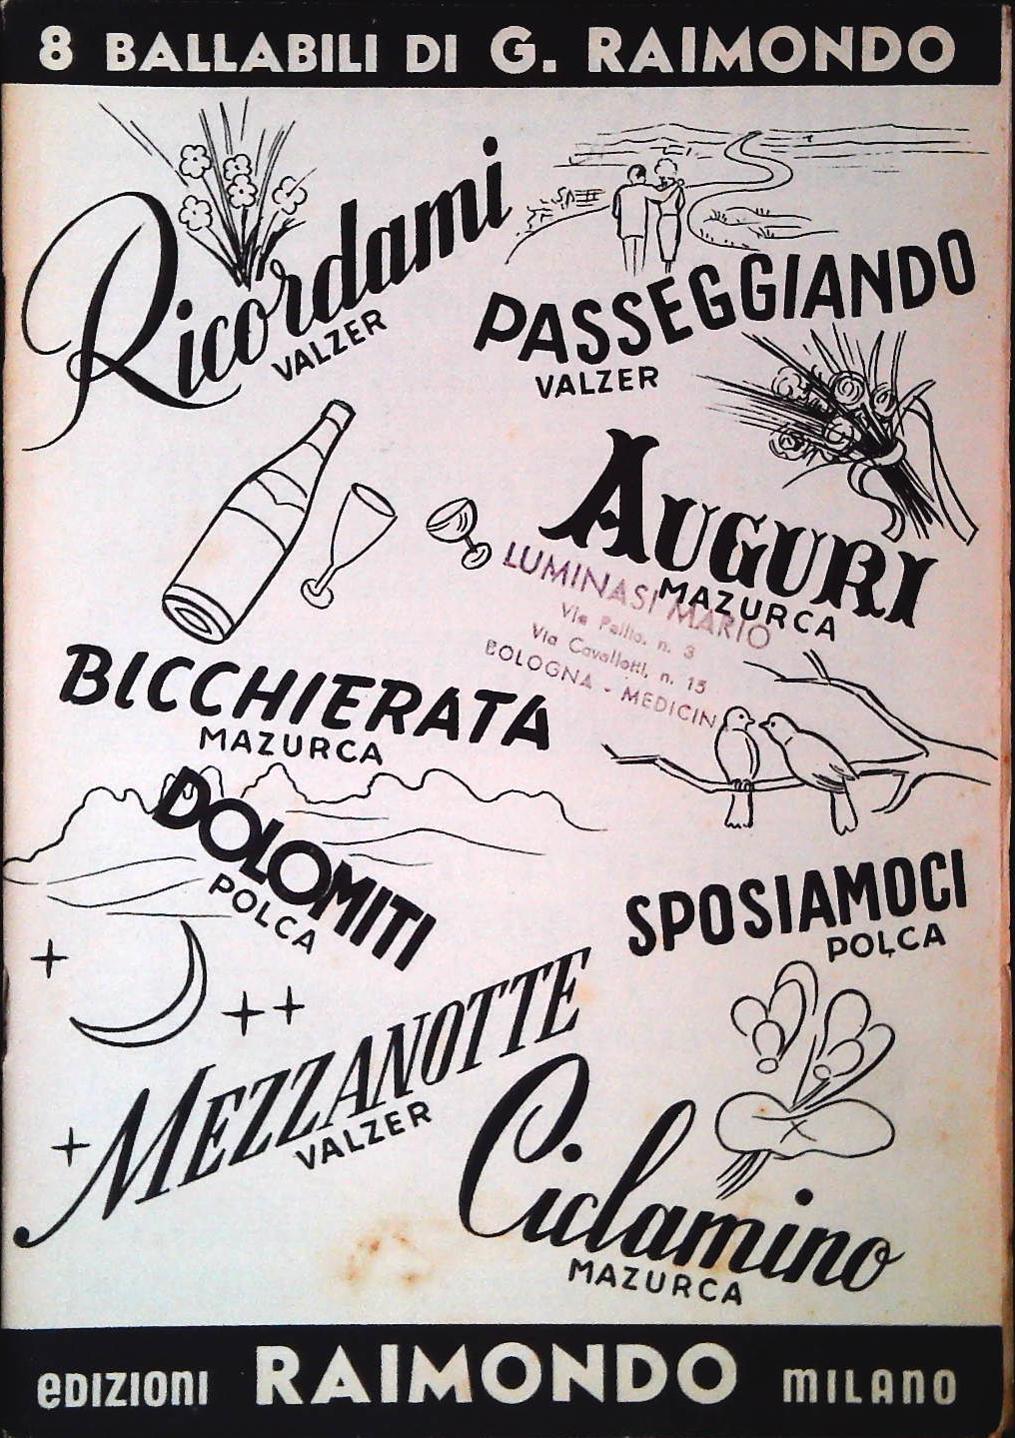 8 BALLABILI DI G. RAIMONDO
Ricordami
VALZER
PASSEGGIANDO
VALZER
AUGURI
MAZURCA
LUMINASI MARIO
Via n. 3
Via Cavallotti, n. 15
BOLOGNA - MEDICIN
BICCHIERATA
MAZURCA
DOLOMITI
POLCA
SPOSIAMOCI
POLCA
MEZZANOTTE
VALZER
Ciclamino
MAZURCA
EDIZIONI RAIMONDO MILANO